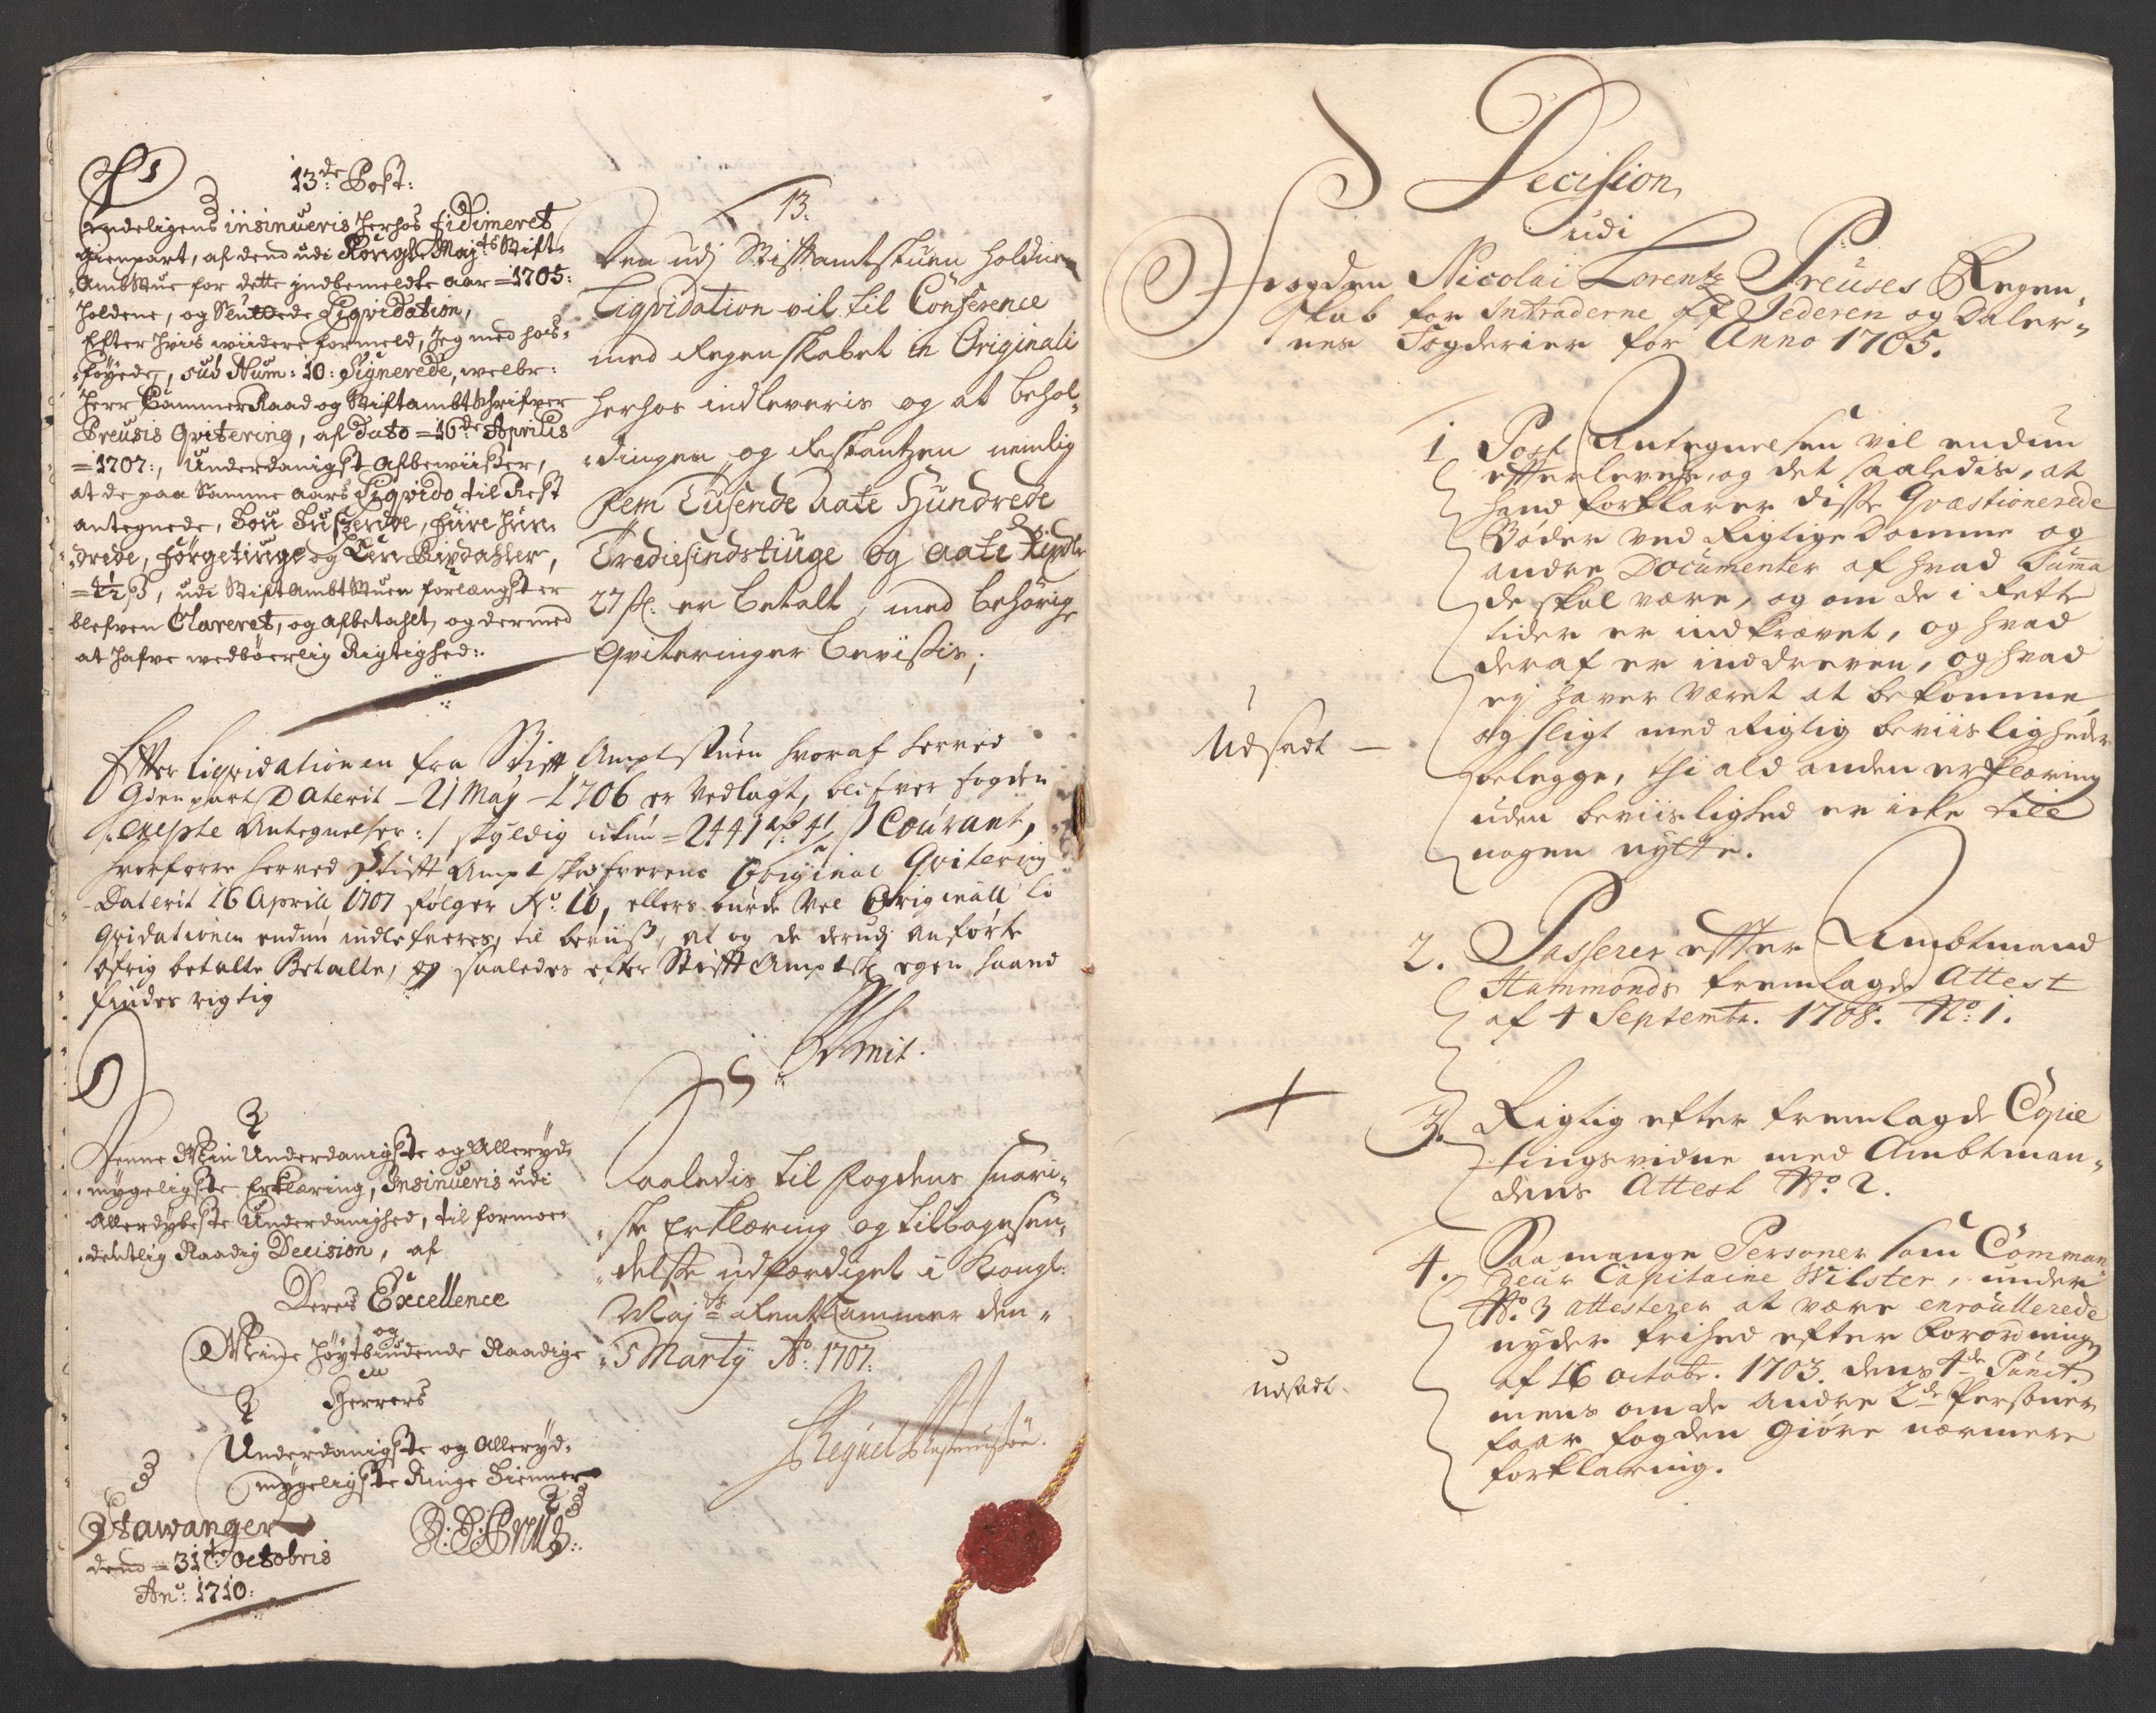 13de Post:
Endeligens insinueris herhos fidimeret
Gienpart, af dend udi Kongl: Majts Stift-
Ambtstue for dette indbemeldte aar = 1705:
holdene, og Sluttede Liqvidation,
Efter hvis wiidere formeld, Jeg med hos-
føyede, sub Num: 10: Signerede, welbr:
Herr Cammer Raad og Stiftambtschrifver
Preusis Qvitering, af dato = 16de Aprilis
= 1707:, Underdanigst afbewiiser,
at de paa Samme aars Liqvido til Rest
antegnede, Tou Tusende, fiire hun-
drede, förgetiuge og Een Rixdahler,
= 4½ ß, udi Stiftambtstuen forlængst er
blefven Clareret, og afbetahlt, og dermed
at hafve wedbøerlig Rigtighed:
13.
Den udj Stiftamtstuen holdne
Liqvidation vil til Conference
med Regenskabet in Originali
herhos indleveris og at behol-
dingen og Restantzen nemlig
fem Tusende Aate Hundrede
Trediesindstiuge og aate Rixdlr
27 ß. er betalt, med behørige
Qviteringer bevisis;
Efter Liqvidationen fra Stift Amptstuen hvoraf herved
Gienpart Daterit – 21 May – 1706 er Vedlagt, blifver fogden
/: Exepte Antegnelser :/ skyldig ickun = 2441 rd 4½ ß Courant,
hvorforre herved Stift Ampt skrifverens Original Qvitering
Daterit 16 April 1707 følger No: 10, ellers burde Vel Originall Li
qvidationen endnu indlefveres, til beviiß, at og de derudj anførte
øfrig betalte Betalte, og saaledes efter Stift Amptsk egen haand
findes rigtig
Denne Min Underdanigste og Alleryd-
mygeligste Erklæring, Insinueris udi
Allerdybeste Underdanighed, til formoe-
dentlig Naadig Decision, af
Deres Excellence
og
Mine høytbiudende Naadige
Herrers
Underdanigste og Alleryd-
mygeligste Ringe Tienner
Stawanger
dend = 31te Octobris
Ano: 1710:
Saaledis til fogdens snari-
ste Erklæring og tilbagesen-
delse udfærdiget i Kongl:
Majts Rentekammer den
5 Martij Ao: 1707.
Decision
udi
Fogden Nicolai Lorentz Preuses Regen-
skab for Intraderne af Jederen og Daler-
nes Fogderier for Anno 1705.
1 Post Antegnelsen vil endnu
efterleves, og det saaledis, at
hand forklarer disse Qvæstionerede
Bøder ved Rigtige Domme og
andre Documenter af hvad Summa
de skal være, og om de i Rette
tider er indkrævet, og hvad
deraf er inddreven, og hvad
ey haver været at bekomme,
og sligt med Rigtig beviisligheder
belegge, thi ald anden erklæring
uden beviislighed er icke till
nogen nytte.
Udsadt –
2. Passerer efter Ambtmand
Hammonds fremlagde Attest
af 4 Septembr. 1708. No: 1.
3. Rigtig efter fremlagde Copie
tingsvidne med Ambtman-
dens Attest No. 2.
4. Saa mange Personer som Comman-
deur Capitaine Wilster, under
No. 3 attesterer at være enroullerede
nyder frihed efter Forordningen
af 16 octobr. 1703. dens 4de Punct.
mens om de andre 2de Personer
faar fogden giøre nærmere
forklaring.
udsadt.